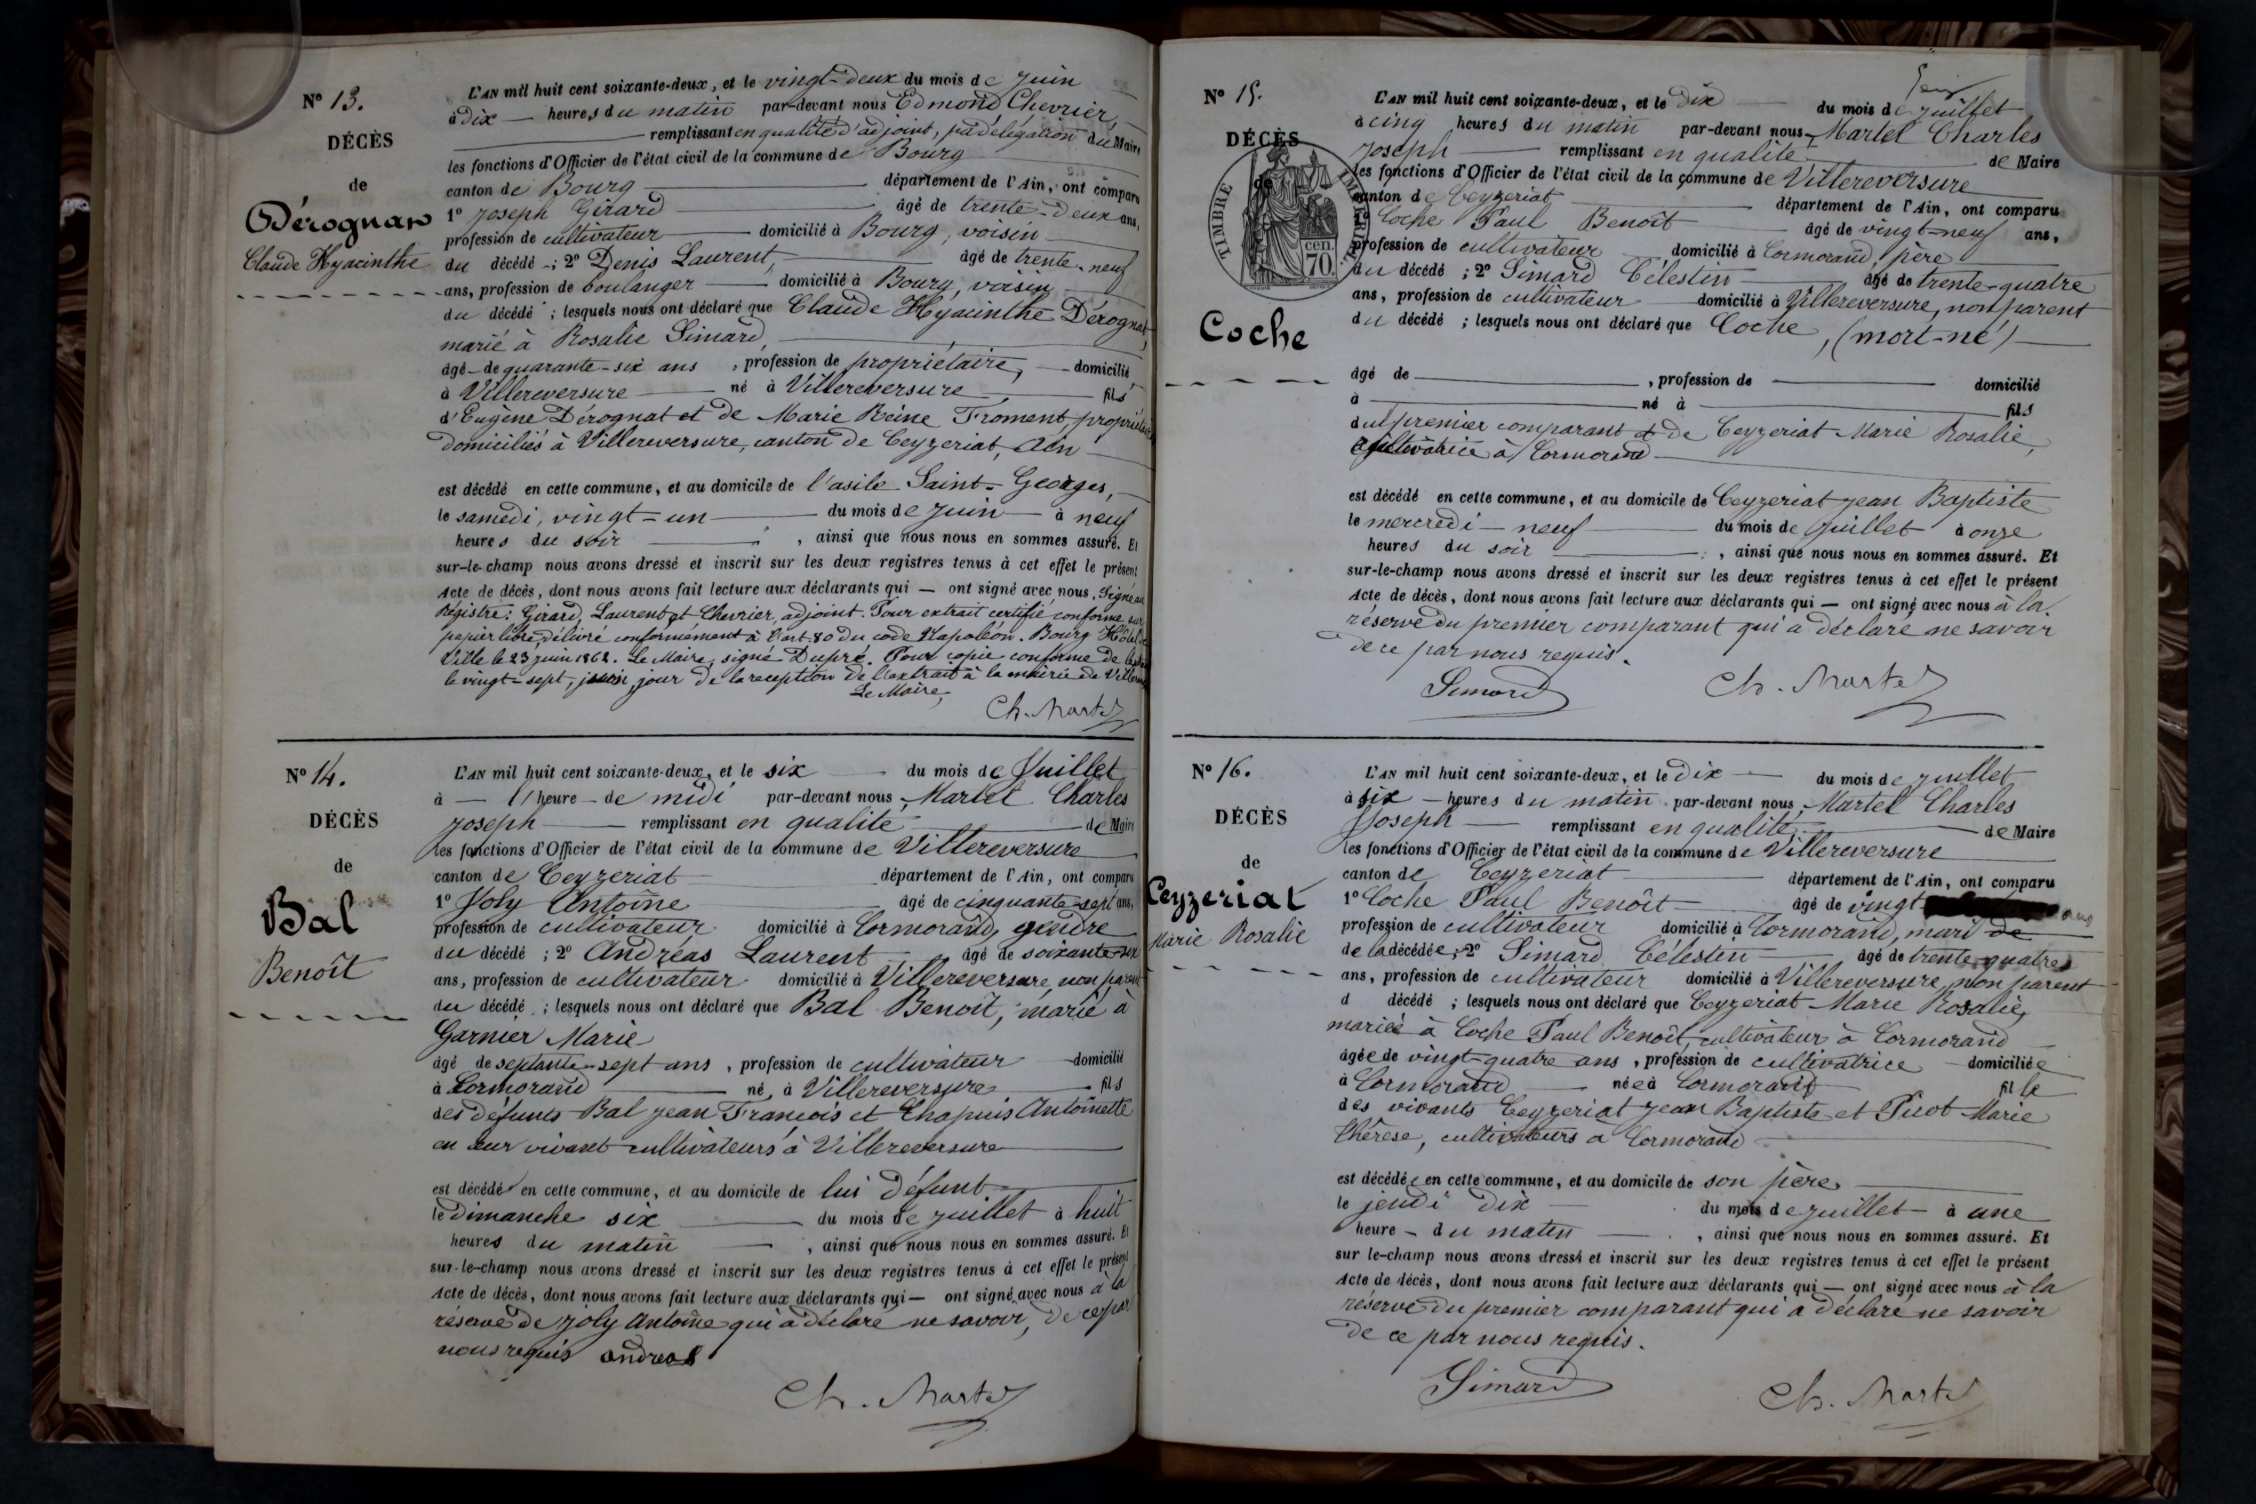 N° 13.
DÉCÈS
de
Dérognat
Claude Hyacinthe
L'AN mil huit cent soixante-deux, et le vingt-deux du mois de juin
à dix heures du matin par-devant nous Edmond Chevrier,
remplissant en qualité d'adjoint, par délégation du Maire
les fonctions d'Officier de l'état civil de la commune de Bourg
canton de Bourg département de l'Ain, ont comparu
1° Joseph Girard âgé de trente-deux ans,
profession de cultivateur domicilié à Bourg, voisin
du décédé ; 2° Denis Laurent, âgé de trente-neuf
ans, profession de boulanger domicilié à Bourg, voisin
du décédé ; lesquels nous ont déclaré que Claude Hyacinthe Dérognat,
marié à Rosalie Simard,
âgé de quarante-six ans, profession de propriétaire, domicilié
à Villereversure né à Villereversure, fils
d'Eugène Dérognat et de Marie Reine Froment, propriétaires
domiciliés à Villereversure, canton de Ceyzeriat, Ain
est décédé en cette commune, et au domicile de l'asile Saint-Georges,
le samedi, vingt-un du mois de juin à neuf
heures du soir, ainsi que nous nous en sommes assuré. Et
sur-le-champ nous avons dressé et inscrit sur les deux registres tenus à cet effet le présent
Acte de décès, dont nous avons fait lecture aux déclarants qui — ont signé avec nous. Signé au
Régistre: Girard, Laurent et Chevrier, adjoint. Pour extrait certifié conforme sur
papier libre, délivré conformément à l'art. 80 du code Napoléon. Bourg Hôtel de
Ville le 23 juin 1862. Le Maire, signé Dupré. Pour copie conforme de
le vingt-sept, juin, jour de la reception de l'extrait à la mairie de
Le Maire,
Ch. Martel
N° 14.
DÉCÈS
de
Bal
Benoît
L'AN mil huit cent soixante-deux, et le six du mois de Juillet
à — l'heure de midi par-devant nous, Martel Charles
Joseph remplissant en qualité de Maire
les fonctions d'Officier de l'état civil de la commune de Villereversure
canton de Ceyzeriat département de l'Ain, ont comparu
1° Joly Antoine âgé de cinquante-sept ans,
profession de cultivateur domicilié à Cormorand, gendre
du décédé ; 2° Andréas Laurent âgé de soixante-
ans, profession de cultivateur domicilié à Villereversure, non parent
du décédé ; lesquels nous ont déclaré que Bal Benoît, marié à
Garnier Marie
âgé de septante-sept ans, profession de cultivateur domicilié
à Cormorand né à Villereversure fils
des défunts Bal Jean François et Chapuis Antoinette
en leur vivant cultivateurs à Villereversure
est décédé en cette commune, et au domicile de lui défunt
le dimanche six du mois de juillet à huit
heures du matin, ainsi que nous nous en sommes assuré. Et
sur-le-champ nous avons dressé et inscrit sur les deux registres tenus à cet effet le présent
Acte de décès, dont nous avons fait lecture aux déclarants qui — ont signé avec nous à la
réserve de Joly Antoine qui a déclaré ne savoir, de ce par
nous requis andreas
Ch. Martel
N° 15.
DÉCÈS
de
TIMBRE IMPERIAL
70 cen.
Coche
L'AN mil huit cent soixante-deux, et le dix du mois de juillet
à cinq heures du matin par-devant nous, Martel Charles
Joseph remplissant en qualité de Maire
les fonctions d'Officier de l'état civil de la commune de Villereversure
canton de Ceyzeriat département de l'Ain, ont comparu
1° Coche Paul Benoît âgé de vingt-neuf ans,
profession de cultivateur domicilié à Cormorand, père
du décédé ; 2° Simard Célestin âgé de trente-quatre
ans, profession de cultivateur domicilié à Villereversure, non parent
du décédé ; lesquels nous ont déclaré que Coche, (mort-né)
âgé de, profession de domicilié
à né à fils
du premier comparant et de Ceyzeriat Marie Rosalie,
cultivatrice à Cormorand
est décédé en cette commune, et au domicile de Ceyzeriat Jean Baptiste
le mercredi neuf du mois de juillet à onze
heures du soir, ainsi que nous nous en sommes assuré. Et
sur-le-champ nous avons dressé et inscrit sur les deux registres tenus à cet effet le présent
Acte de décès, dont nous avons fait lecture aux déclarants qui — ont signé avec nous à la
réserve du premier comparant qui a déclaré ne savoir
de ce par nous requis.
Simard Ch. Martel
N° 16.
DÉCÈS
de
Ceyzeriat
Marie Rosalie
L'AN mil huit cent soixante-deux, et le dix du mois de juillet
à six heures du matin par-devant nous, Martel Charles
Joseph remplissant en qualité de Maire
les fonctions d'Officier de l'état civil de la commune de Villereversure
canton de Ceyzeriat département de l'Ain, ont comparu
1° Coche Paul Benoît âgé de vingt ans
profession de cultivateur domicilié à Cormorand, mari de
de la décédée, 2° Simard Célestin âgé de trente-quatre
ans, profession de cultivateur domicilié à Villereversure, non parent
d décédé ; lesquels nous ont déclaré que Ceyzeriat Marie Rosalie,
mariée à Coche Paul Benoît, cultivateur à Cormorand
âgée de vingt-quatre ans, profession de cultivatrice domiciliée
à Cormorand née à Cormorand fille
des vivants Ceyzeriat Jean Baptiste et Picot Marie
Thérèse, cultivateurs à Cormorand
est décédée en cette commune, et au domicile de son père
le jeudi dix du mois de juillet à une
heure du matin, ainsi que nous nous en sommes assuré. Et
sur le-champ nous avons dressé et inscrit sur les deux registres tenus à cet effet le présent
Acte de décès, dont nous avons fait lecture aux déclarants qui — ont signé avec nous à la
réserve du premier comparant qui a déclaré ne savoir
de ce par nous requis.
Simard Ch. Martel